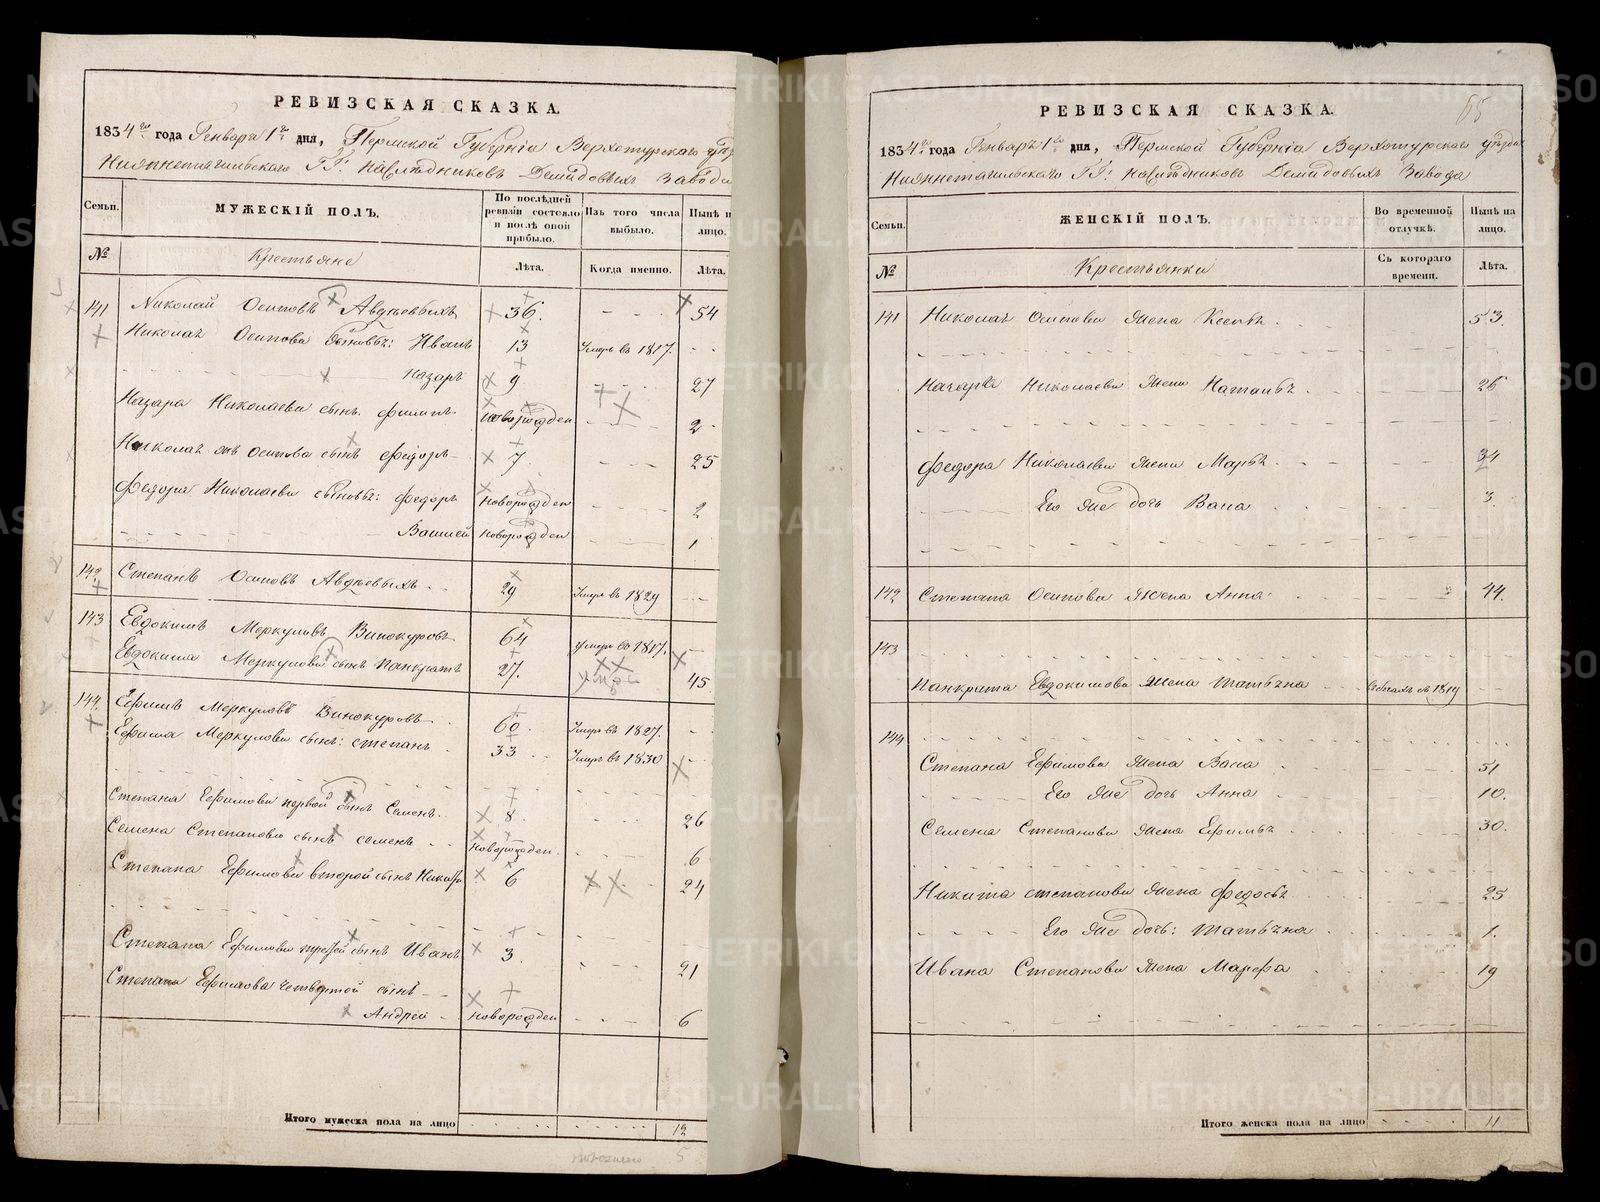 РЕВИЗСКАЯ СКАЗКА.
1834го года Генваря 1го дня, Пермской Губерніи Верхотурскаго
Нижнетагильскаго ГГ: Наслѣдниковъ Демидовыхъ Завода
Семьи. МУЖЕСКІЙ ПОЛЪ. По послѣдней ревизіи состояло и послѣ оной прибыло. Изъ того числа выбыло. Нынѣ на лицо.
№ Крестьяне Лѣта. Когда именно. Лѣта.
141 Николай Осиповъ Авдѣевыхъ 36. 54
Николая Осипова сыновья: Иванъ 13 Умеръ въ 1817.
Назаръ 9 27
Назара Николаева сынъ Филипъ новорожден 2
Николая Осипова сынъ Федоръ 7 25
Федора Николаева сыновья: Федоръ новорожден 2
Василей новорожден 1
142 Степанъ Осиповъ Авдѣевыхъ 29 Умеръ въ 1829
143 Евдокимъ Меркуловъ Винокуровъ 64 умеръ въ 1817.
Евдокима Меркулова сынъ Панкратъ 27. 45
144. Ефимъ Меркуловъ Винокуровъ 60 Умеръ въ 1827.
Ефима Меркулова сынъ: Степанъ 33 Умеръ въ 1830
Степана Ефимова первой сынъ Семенъ 8. 26
Семена Степанова сынъ Семенъ новорожден. 6
Степана Ефимова второй сынъ Никита 6 24
Степана Ефимова третей сынъ Иванъ 3. 21
Степана Ефимова четвертой сынъ
Андрей новорожден 6
Итого мужеска пола на лицо 12
5
65
РЕВИЗСКАЯ СКАЗКА.
1834го года Генваря 1го дня, Пермской Губерніи Верхотурскаго уѣзда
Нижнетагильскаго ГГ: Наслѣдниковъ Демидовыхъ Завода
Семьи. ЖЕНСКІЙ ПОЛЪ. Во временной отлучкѣ. Нынѣ на лицо.
№ Крестьянки Съ котораго времени. Лѣта.
141 Николая Осипова жена 53.
Назара Николаева жена Наталья 26
Федора Николаева жена Марья 34
Его же дочь 3
142 Степана Осипова жена Анна 44.
143
Панкрата Евдокимова жена Татьяна въ 1819
144
Степана Ефимова жена 51
Его же дочь Анна 10.
Семена Степанова жена 30.
Никита Степанова жена Федосья 25
Его же дочь: Татьяна 1.
Ивана Степанова жена Марфа 19
Итого женска пола на лицо 11
METRIKI.GASO-URAL.RU